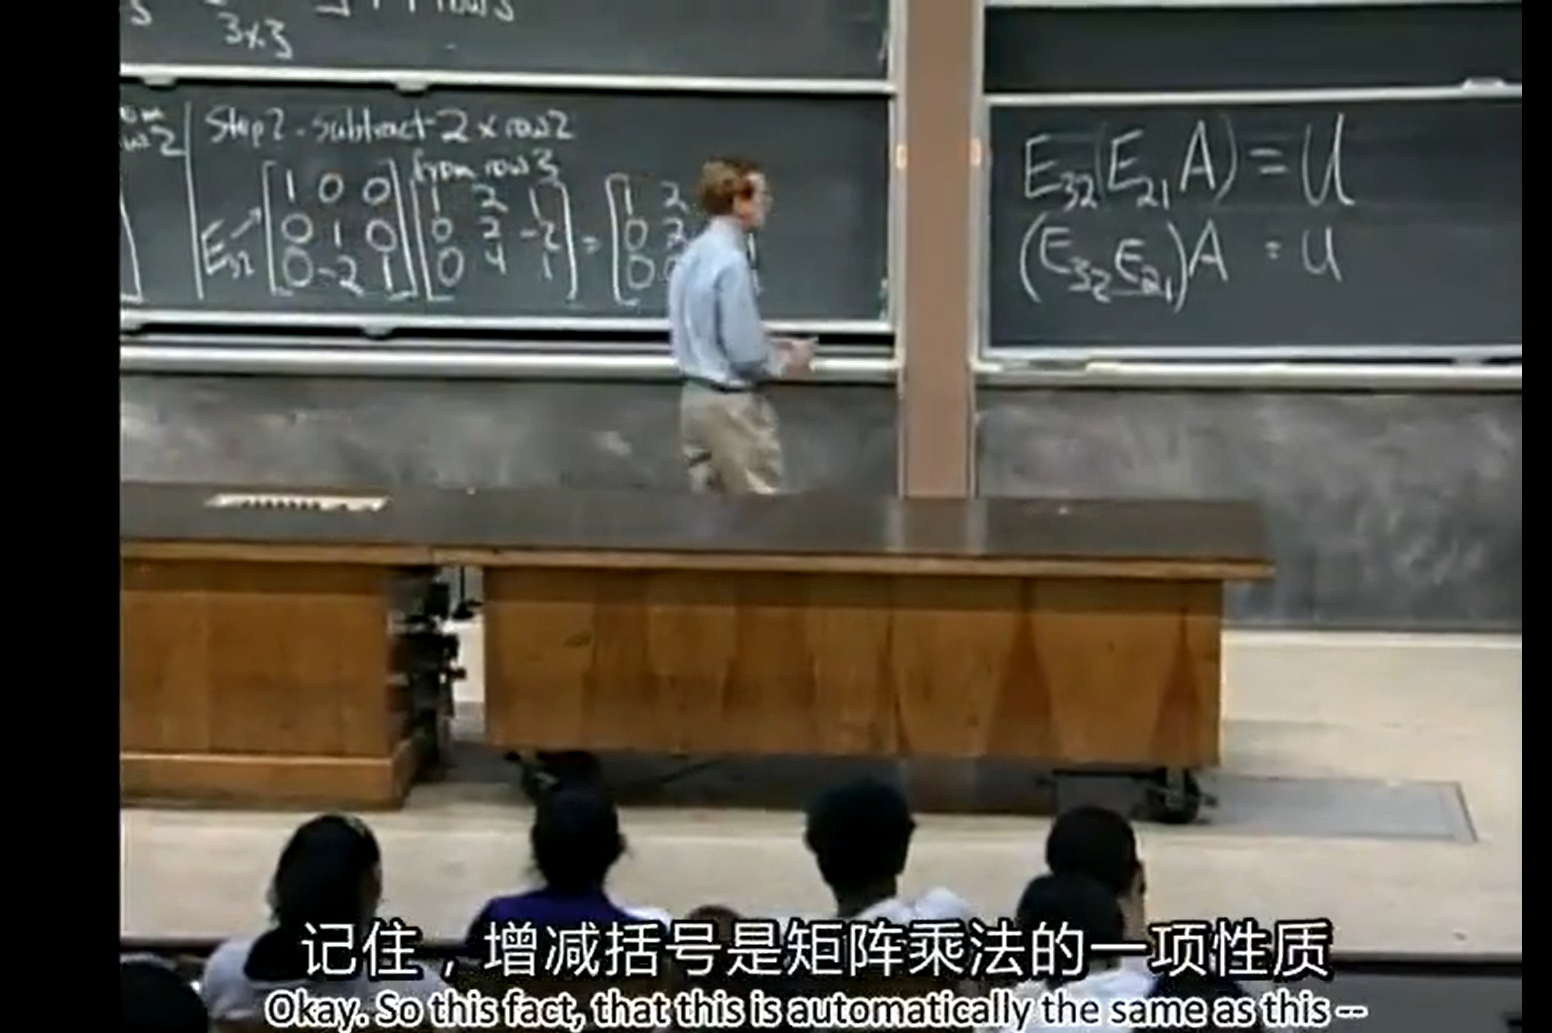 3x3
Step 2. subtract 2 x row 2
from row 3
E32 [1 0 0] [1 2 1] = [1 2
[0 1 0] [0 2 -2] [0 2
[0 -2 1] [0 4 1] [0 0
E32(E21 A) = U
(E32 E21)A = U
记住，增减括号是矩阵乘法的一项性质
Okay. So this fact, that this is automatically the same as this --